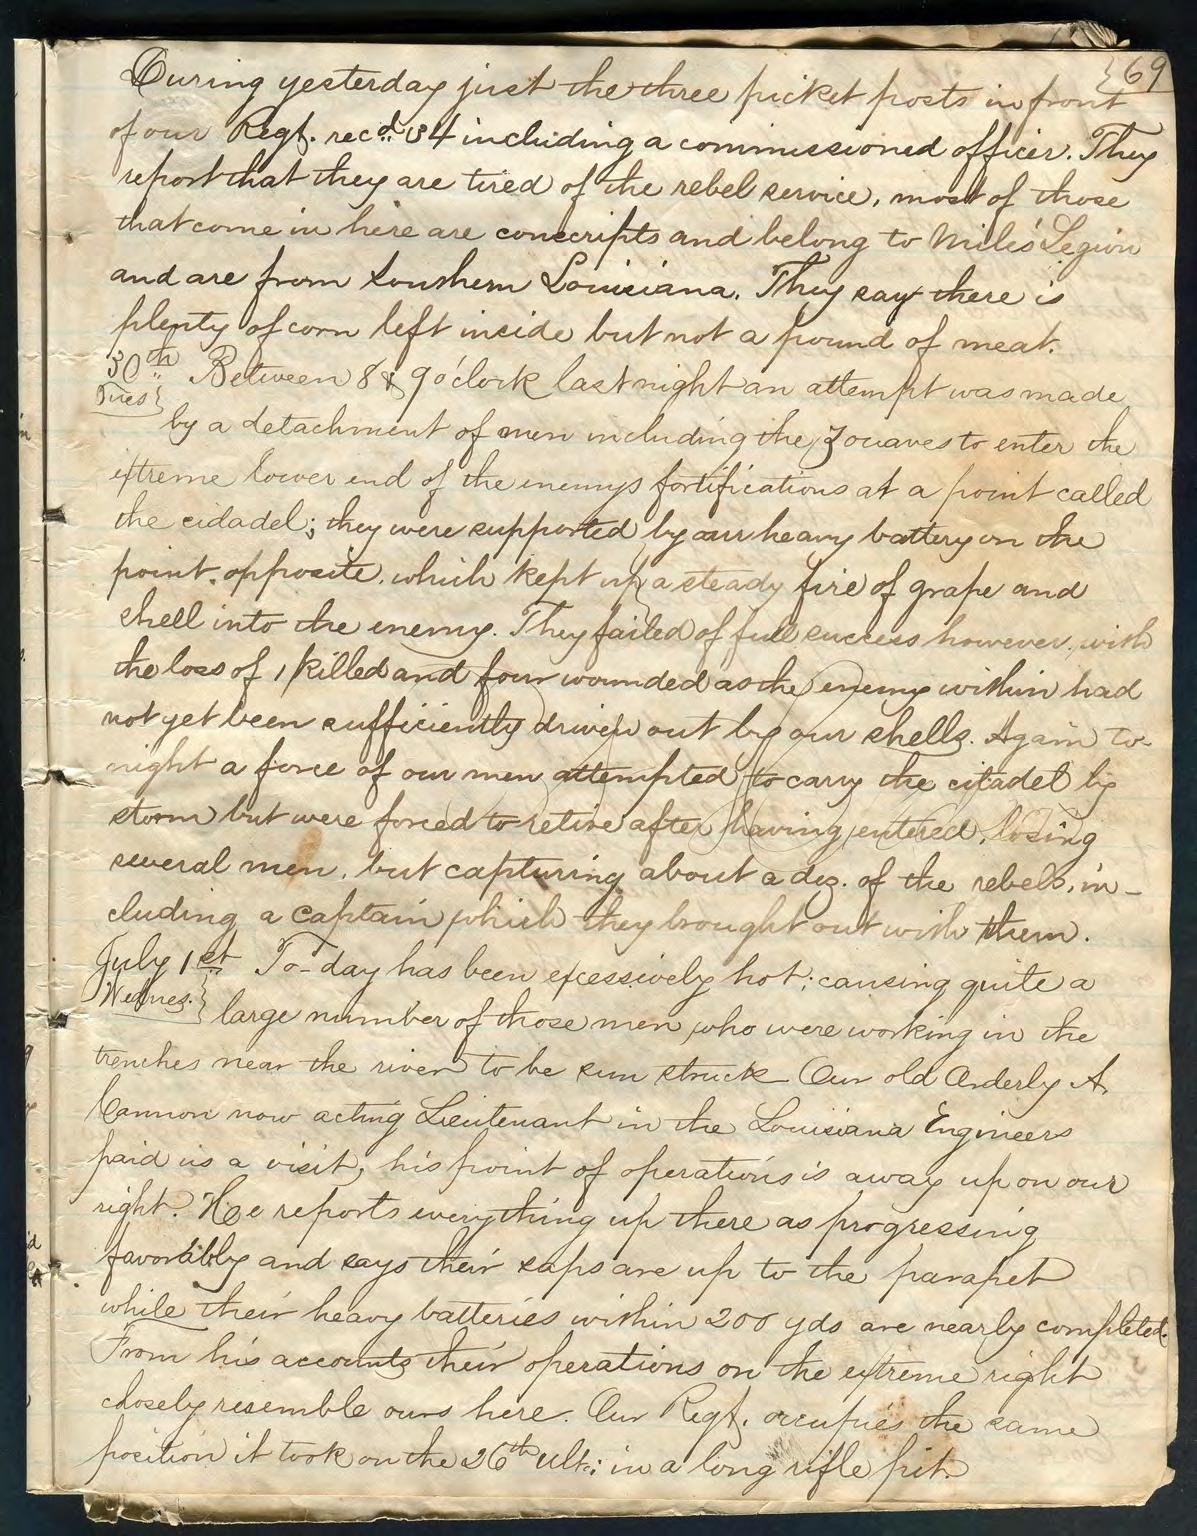 69
During yesterday just the three picket posts in front
of our Regt. recd. 34 including a commissioned officer. They
report that they are tired of the rebel service, most of those
that come in here are conscripts and belong to Miles' Legion
and are from Southern Louisiana. They say there is
plenty of corn left inside but not a pound of meat.
30th Between 8 & 9 o'clock last night an attempt was made
Tues
by a detachment of men including the Zouaves to enter the
extreme lower end of the enemys fortifications at a point called
the cidadel; they were supported by our heavy battery on the
point opposite, which kept up a steady fire of grape and
shell into the enemy. They failed of full success however, with
the loss of 1 killed and four wounded as the enemy within had
not yet been sufficiently driven out by our shells. Again to-
night a force of our men attempted to carry the citadel by
storm but were forced to retire after having entered, losing
several men, but capturing about a doz. of the rebels, in-
cluding a captain which they brought out with them.
July 1st To-day has been excessively hot; causing quite a
Wednes.
large number of those men who were working in the
trenches near the river to be sun struck. Our old Orderly A.
Cannon now acting Lieutenant in the Louisiana Engineers
paid us a visit, his point of operations is away up on our
right. He reports everything up there as progressing
favorably and says their saps are up to the parapet
while their heavy batteries within 200 yds are nearly completed.
From his accounts their operations on the extreme right
closely resemble ours here. Our Regt. occupies the same
position it took on the 26th ult.; in a long rifle pit.